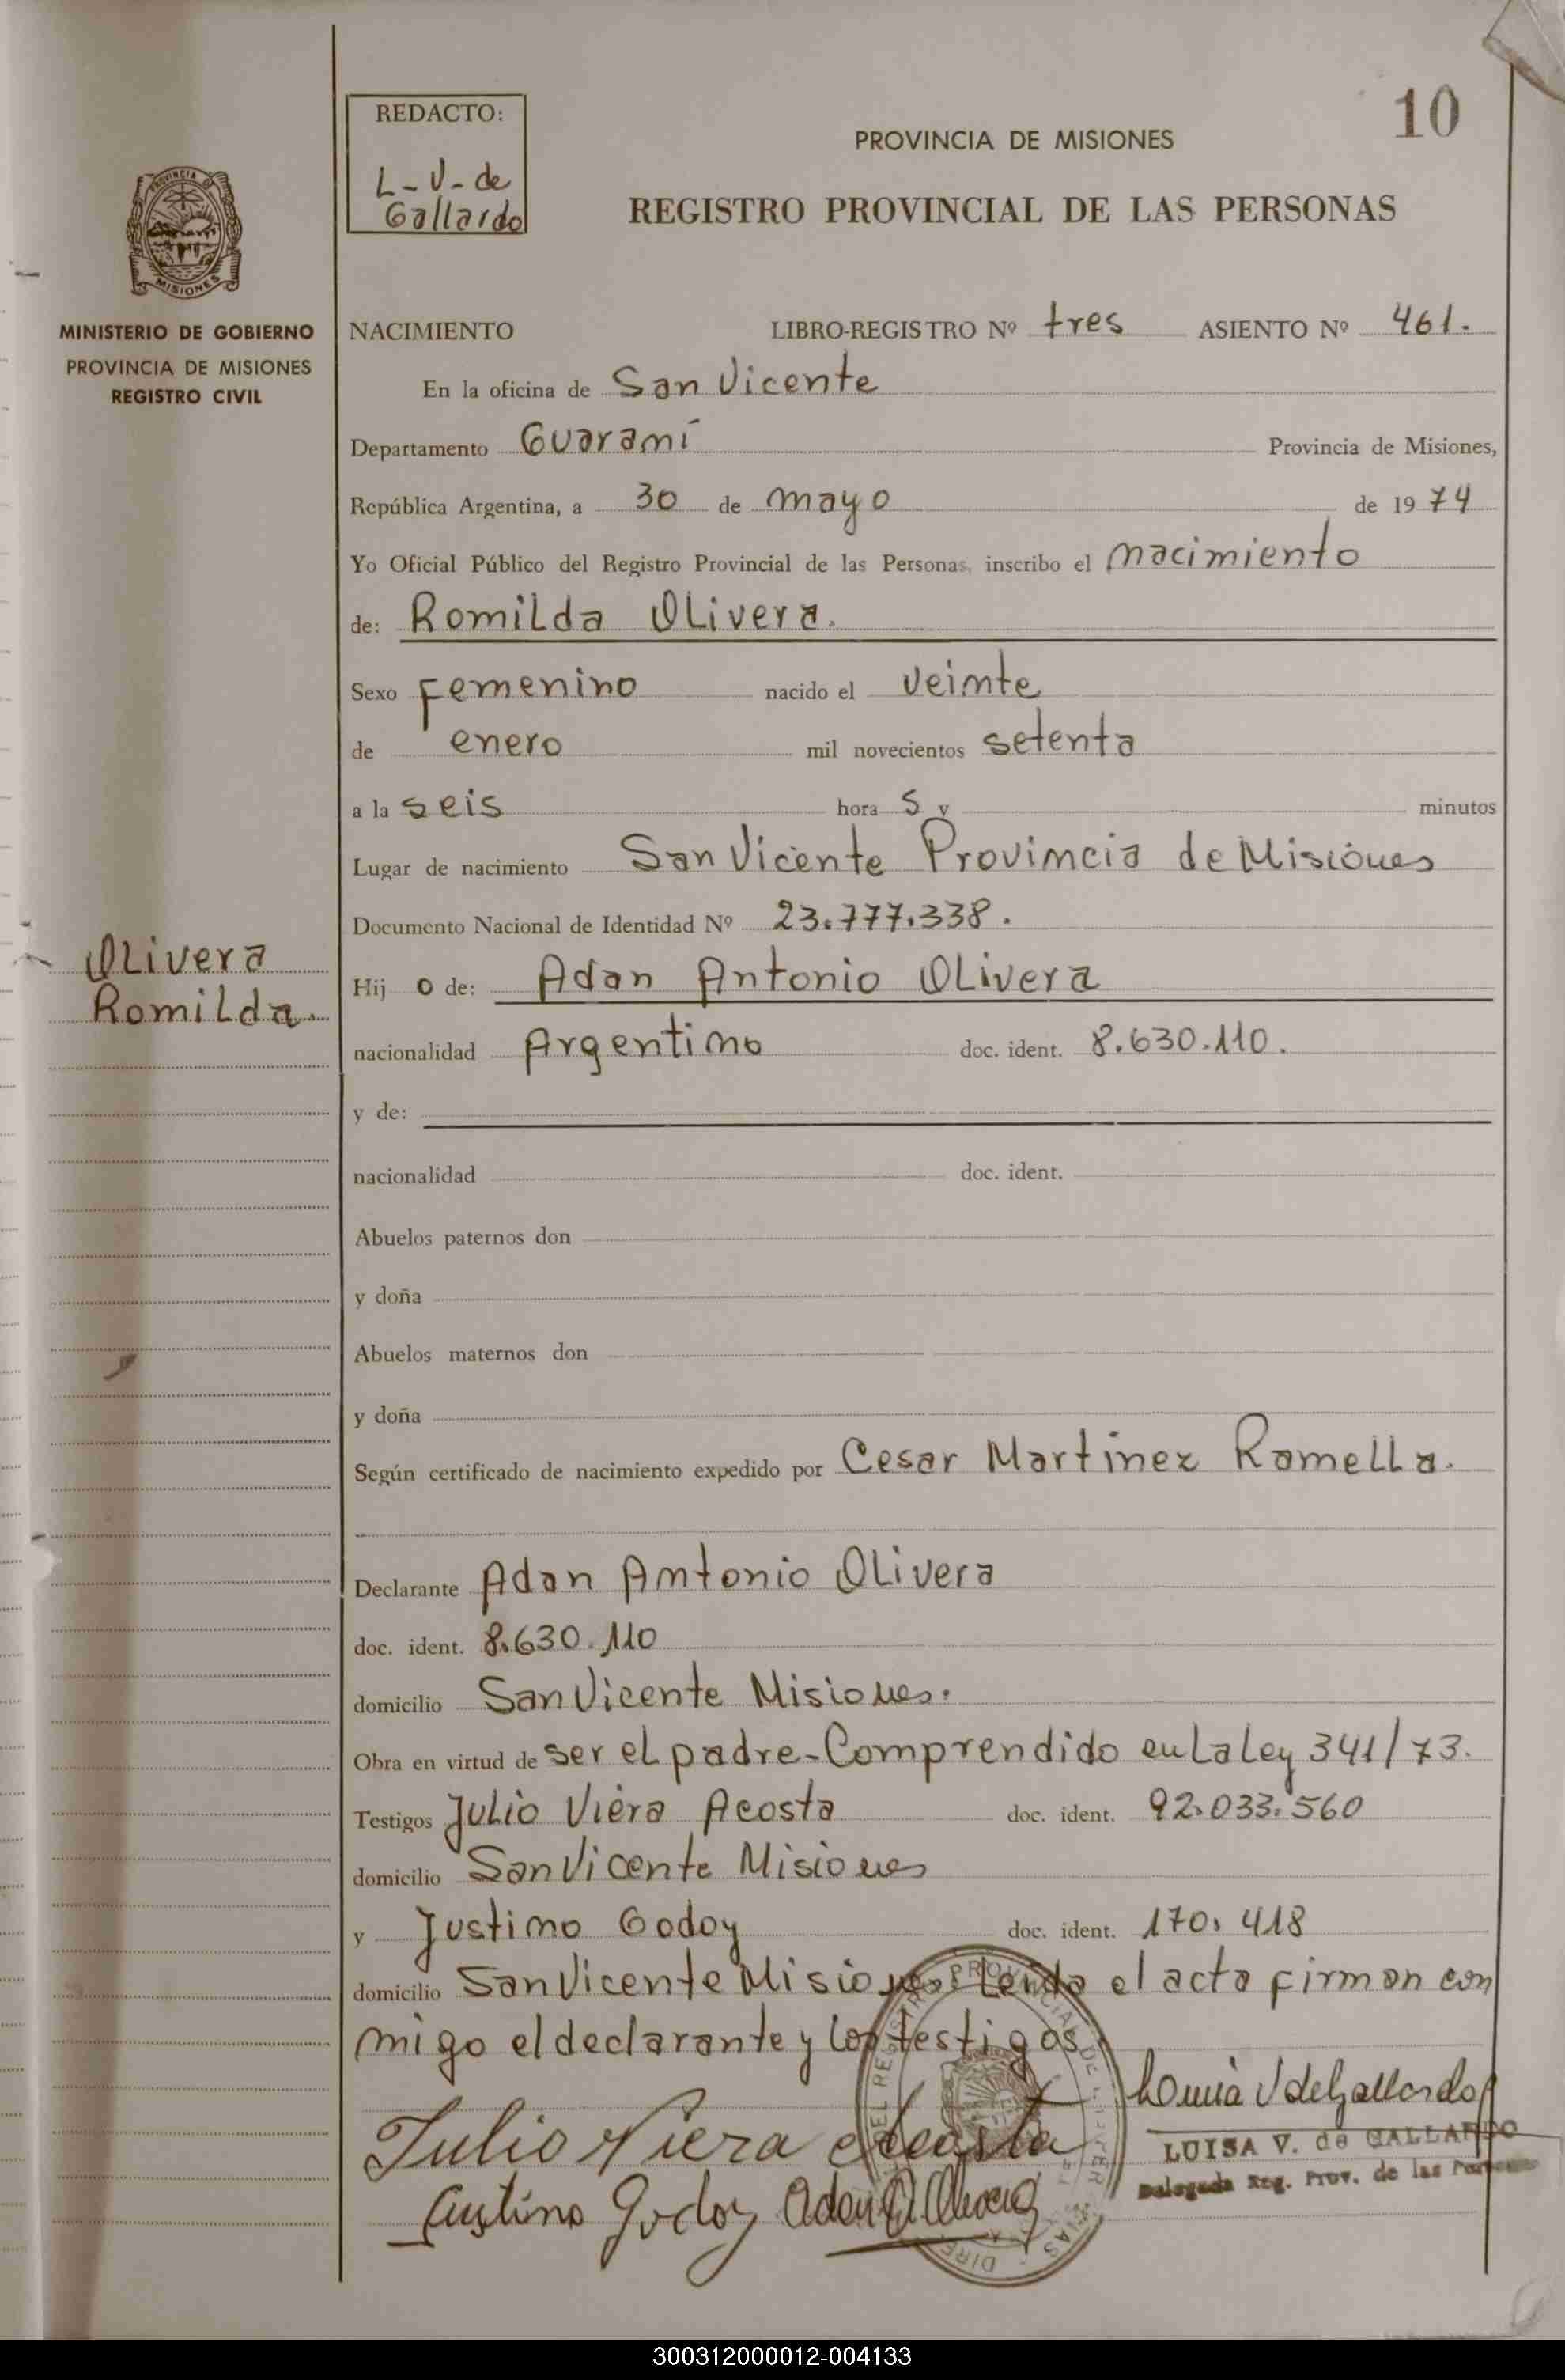 10
REDACTO:
L-V-de
Gallardo
PROVINCIA DE MISIONES
REGISTRO PROVINCIAL DE LAS PERSONAS
PROVINCIA DE
MISIONES
MINISTERIO DE GOBIERNO
PROVINCIA DE MISIONES
REGISTRO CIVIL
NACIMIENTO LIBRO-REGISTRO Nº tres ASIENTO Nº 461.
En la oficina de San Vicente
Departamento Guaraní Provincia de Misiones,
República Argentina, a 30 de mayo de 1974
Yo Oficial Público del Registro Provincial de las Personas, inscribo el nacimiento
de: Romilda Olivera.
Sexo Femenino nacido el veinte
de enero mil novecientos setenta
a la seis hora s y minutos
Lugar de nacimiento San Vicente Provincia de Misiones
Documento Nacional de Identidad Nº 23.777.338.
Olivera
Romilda.
Hij o de: Adan Antonio Olivera
nacionalidad Argentino doc. ident. 8.630.110.
y de:
nacionalidad doc. ident.
Abuelos paternos don
y doña
Abuelos maternos don
y doña
Según certificado de nacimiento expedido por Cesar Martinez Ramella.
Declarante Adan Antonio Olivera
doc. ident. 8.630.110
domicilio San Vicente Misiones.
Obra en virtud de ser el padre-Comprendido en La Ley 341/73.
Testigos Julio Viera Acosta doc. ident. 92.033.560
domicilio San Vicente Misiones
y Justino Godoy doc. ident. 170.418
domicilio San Vicente Misiones: Leida el acta firman con
migo el declarante y los testigos
Julio Viera Acosta
Justino Godoy
LUISA V. de GALLARDO
Delegada Reg. Prov. de las Personas
300312000012-004133